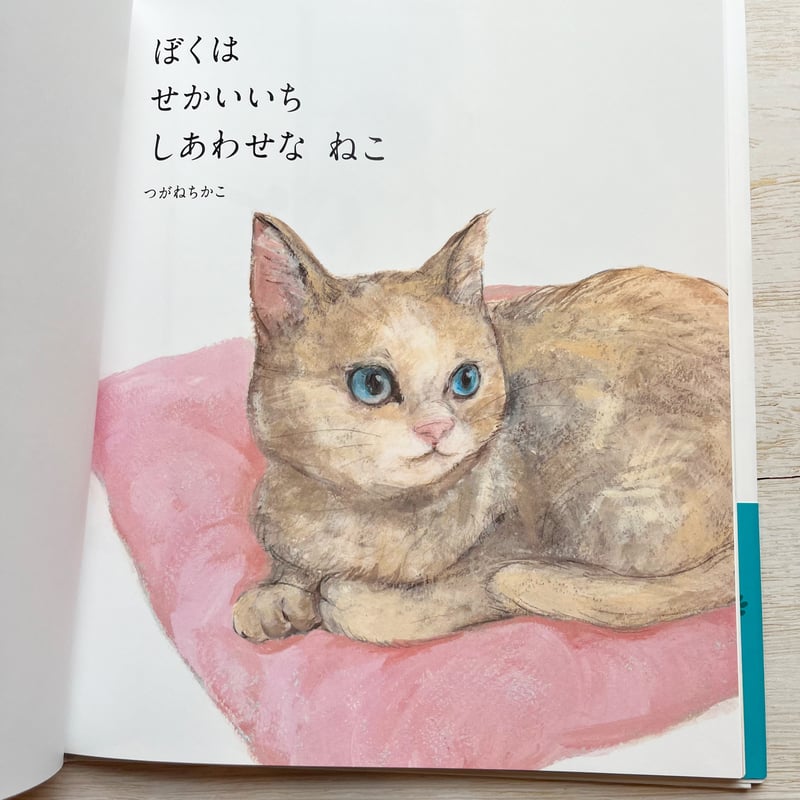 ぼくは
せかいいち
しあわせな ねこ
つがねちかこ